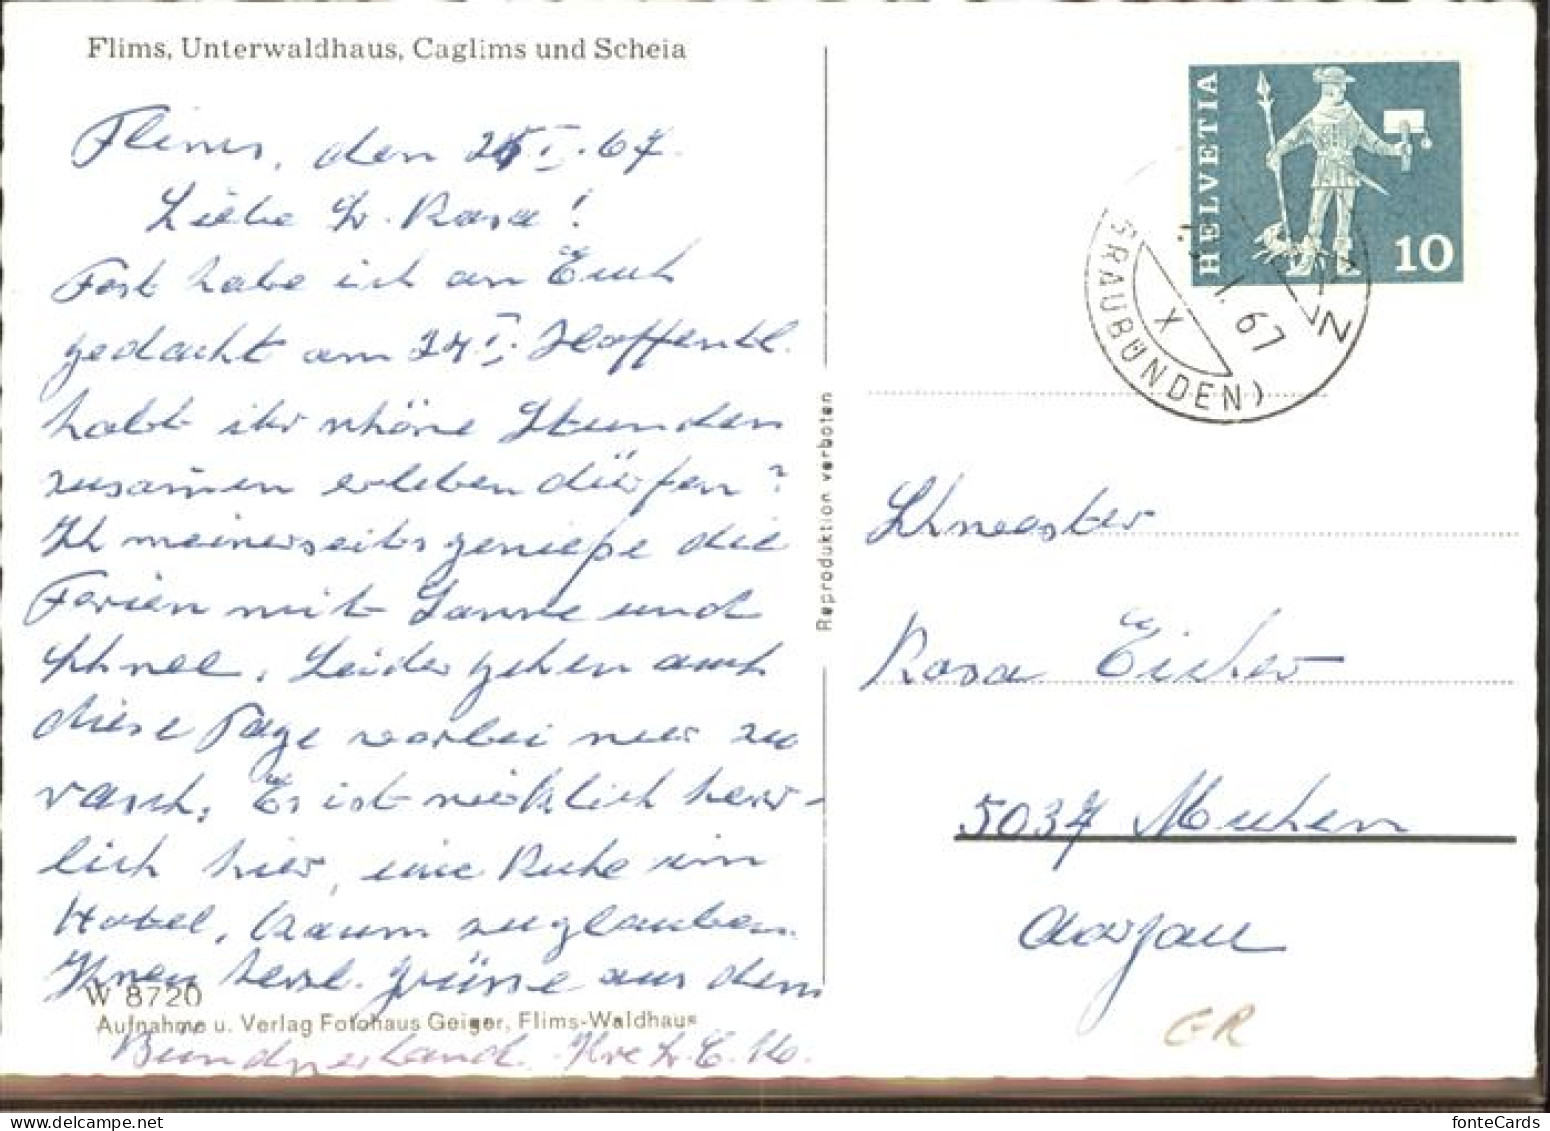 Flims, Unterwaldhaus, Caglims und Scheia
Flims, den 25. I. 67.
Liebe Sr. Rosa!
Fest habe ich an Euch
gedacht am 24. I. Hoffentl.
habt ihr schöne Stunden
zusamen erleben dürfen?
Ich meinerseits genieße die
Ferien mit Sonne und
Schnee. Leider gehen auch
diese Tage vorbei nur zu
rasch. Es ist wirklich herr-
lich hier, eine Ruhe im
Hotel, kaum zu glauben.
Ihnen herzl. Grüsse aus dem
Bündnerland. Ihre Sr. E.
W 8720
Aufnahme u. Verlag Fotohaus Geiger, Flims-Waldhaus
Reproduktion verboten
HELVETIA
10
GRAUBÜNDEN)
X
67
Schwester
Rosa Eicher
5037 Muhen
Aargau
GR
fonteCards